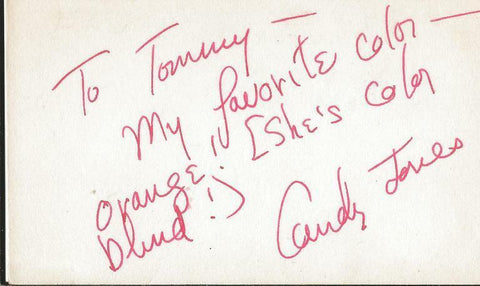 To Tommy —
My favorite color —
orange! [She's color
blind!]
Candy Jones